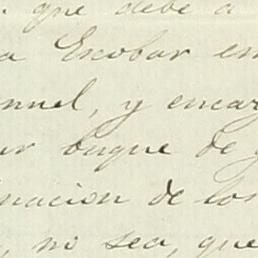 que debe a
a Escobar em
nnel, y encar
er buque de g
inacion de los
, no sea, que